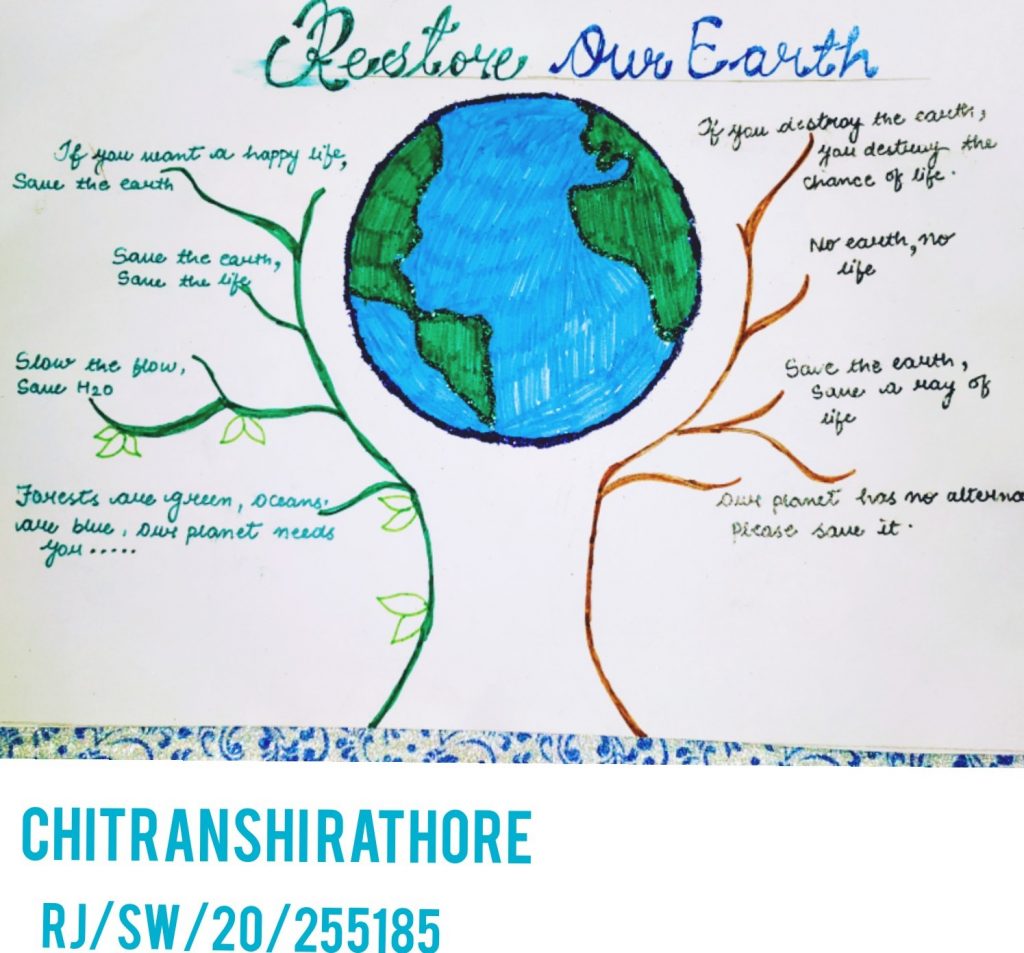 Restore Our Earth
If you want a happy life,
Save the earth
Save the earth,
Save the life
Slow the flow,
Save H2O
Forests are green, oceans
are blue, our planet needs
you.....
If you destroy the earth,
you destroy the
chance of life.
No earth, no
life
Save the earth,
Save a way of
life
Our planet has no
Please save it.
CHITRANSHIRATHORE
RJ/SW/20/255185